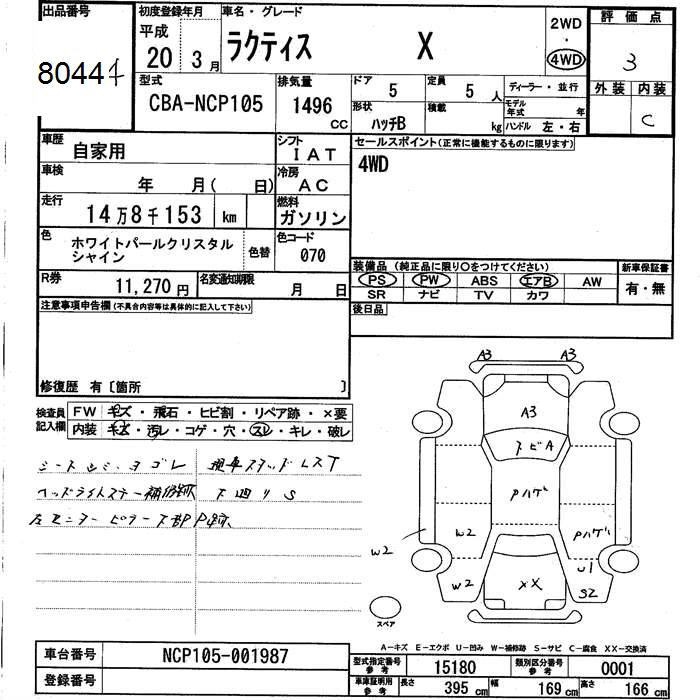 出品番号 初度登録年月 車名・グレード 2WD 評価点
80444 平成 20 3月 ラクティス X ・ 4WD 3
型式 排気量 ドア 定員 ディーラー・並行 外装 内装
CBA-NCP105 1496 CC 5 5 人 モデル年式 年 C
形状 ハッチB 積載 kg ハンドル 左・右
車歴 自家用 シフト IAT セールスポイント(正常に機能するものに限ります)
車検 年 月( 日) 冷房 AC 4WD
走行 14万8千153 km 燃料 ガソリン
色 ホワイトパールクリスタルシャイン 色替 色コード 070
装備品 (純正品に限り○をつけてください) 新車保証書
R券 11,270円 名変通知期限 月 日 PS PW ABS エアB AW 有・無
SR ナビ TV カワ
注意事項申告欄(不具合内容等は具体的に記入して下さい) 後日品
修復歴 有[箇所 ]
検査員記入欄 FW キズ・飛石・ヒビ割・リペア跡・×要
内装 キズ・汚レ・コゲ・穴・スレ・キレ・破レ
シートシミ、ヨゴレ
ヘッドライトステー補修跡
下廻りS
A3 A3
A3
トビA
Pハゲ
W2 W2 Pハゲ
U1
W2 XX S2
スペア
A-キズ E-エクボ U-凹み W-補修跡 S-サビ C-腐食 XX-交換済
車台番号 NCP105-001987 型式指定番号 参考 15180 類別区分番号 参考 0001
登録番号 車庫証明用 参考 長さ 395 cm 幅 169 cm 高さ 166 cm